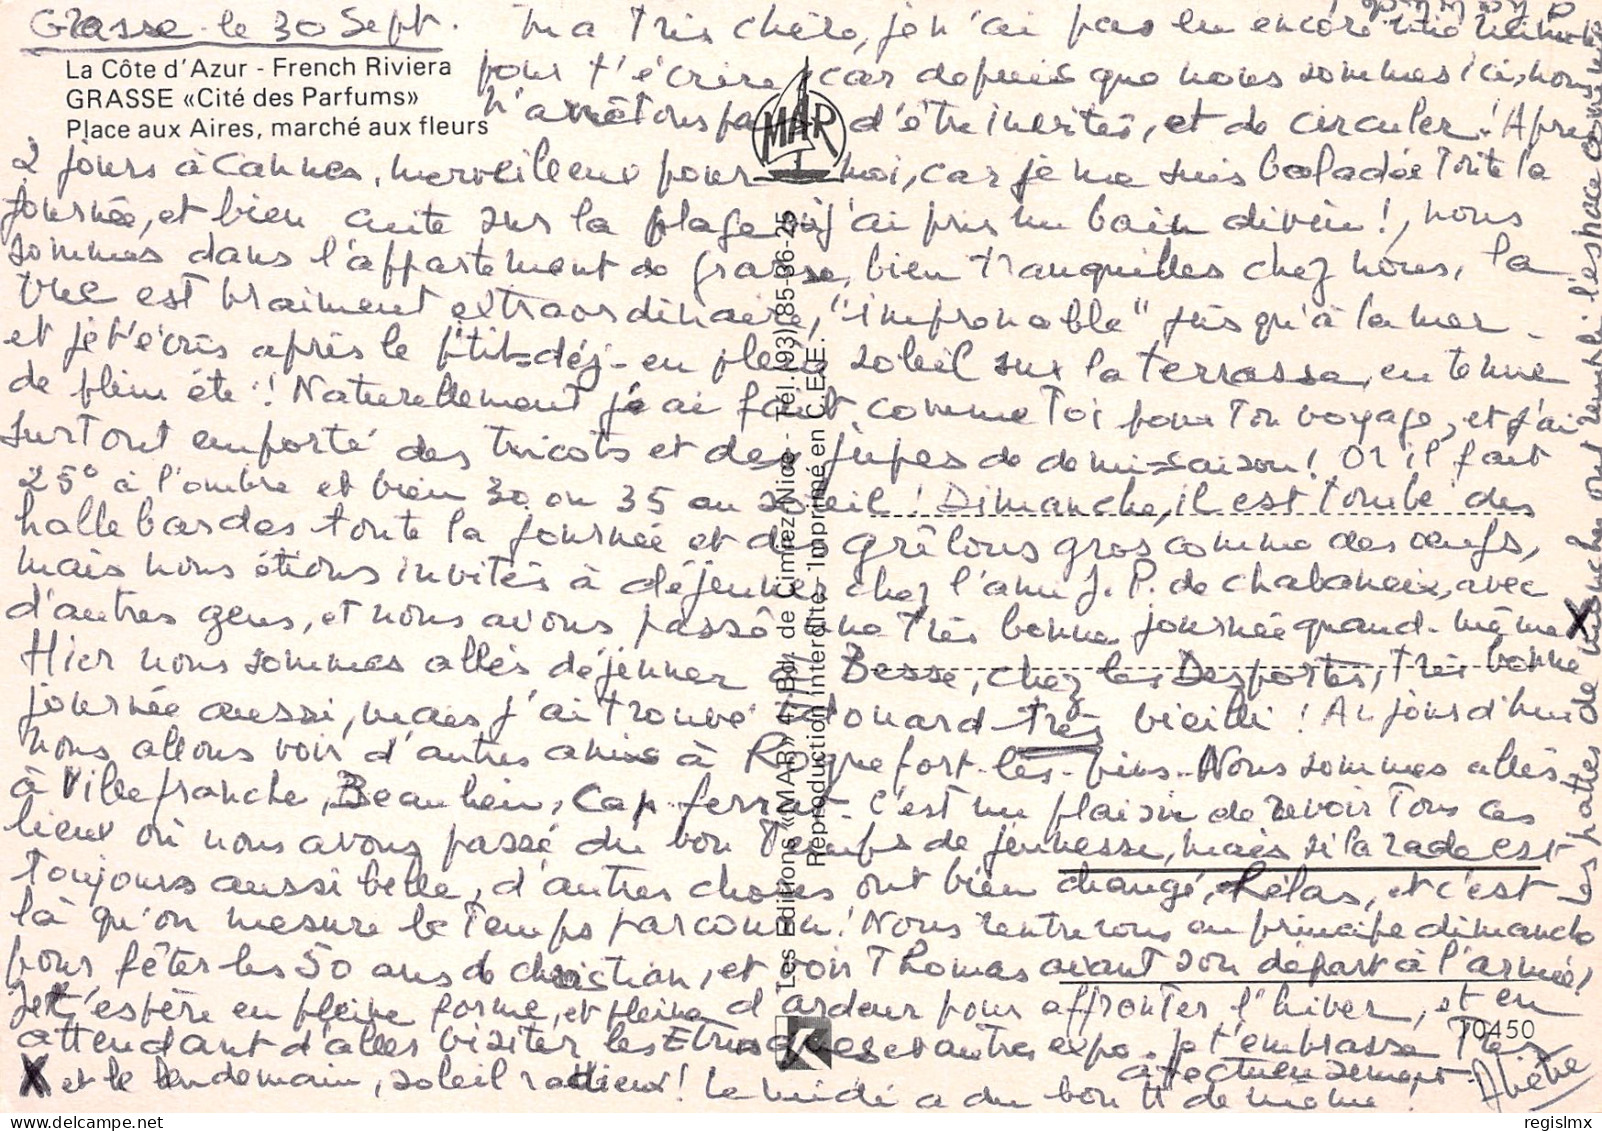 Grasse le 30 Sept.
Ma très chère, je n'ai pas eu encore une minute
La Côte d'Azur - French Riviera
pour t'écrire, car depuis que nous sommes ici, nous
GRASSE «Cité des Parfums»
n'arrêtons pas d'être invités, et de circuler! Après
Place aux Aires, marché aux fleurs
MAR
2 jours à Cannes, merveilleux pour moi, car je me suis baladée toute la
journée, et bien cuite sur la plage où j'ai pris un bain divin!, nous
sommes dans l'appartement de Grasse, bien tranquilles chez nous, la
vue est vraiment extraordinaire, "imprenable" jusqu'à la mer -
et je t'écris après le p'tit-déj- en plein soleil sur la terrasse, en tenue
de plein été! Naturellement j'ai fait comme toi pour ton voyage, et j'ai
surtout emporté des tricots et des jupes de demi-saison! Or il fait
25° à l'ombre et bien 30 ou 35 au soleil! Dimanche, il est tombé des
hallebardes toute la journée et des grêlons gros comme des oeufs,
mais nous étions invités à déjeuner chez l'ami J. P. de Chabaneix, avec
d'autres gens, et nous avons passé une très bonne journée quand-même X
Hier nous sommes allés déjeuner à Besse, chez les Desportes, très bonne
journée aussi, mais j'ai trouvé Edouard très vieilli! Aujourd'hui
nous allons voir d'autres amis à Roquefort-les-pins. Nous sommes allés
à Villefranche, Beaulieu, Cap ferrat - c'est un plaisir de revoir tous ces
lieux où nous avons passé du bon temps de jeunesse, mais si la rade est
toujours aussi belle, d'autres choses ont bien changé, hélas, et c'est
là qu'on mesure le temps parcouru! Nous rentrerons en principe dimanche
pour fêter les 50 ans de Christian, et voir Thomas avant son départ à l'armée!
Je t'espère en pleine forme, et pleine d'ardeur pour affronter l'hiver, et en
attendant d'aller visiter les Etrusques et autres expo. je t'embrasse Très
affectueusement.
X et le lendemain, soleil radieux! Le midi a du bon tt de même!
70450
Les Editions «MAR» 4, Bd. de Cimiez Nice - Tél. (93) 85-36-25
Reproduction interdite Imprimé en C.E.E.
Les pattes de mouche ont rempli l'espace
regislmx